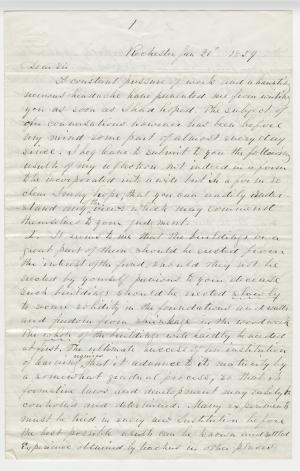 1
Rochester Jan 20th 1859
Dear Sir
A constant pressure of work and exhausting
nervous headache have prevented me from writing
you as soon as I had hoped. The subject of
our conversations however has been before
my mind some part of almost every day
since. I beg leave to submit to you the following
results of my reflection not indeed in a form
to be incorporated into a will but in a form so
clear I may hope, that you can easily under
stand my views which may commend
themselves to your judgment.
1. It seems to me that the buildings or a
great part of them should be erected from
the interest of the fund, should they not be
erected by yourself previous to your decease
such buildings should be erected
to secure solidity in the foundations and walls
and freedom from shrinkage in the wood work
The whole of the buildings will hardly be needed
at first. The ultimate success of an institution
of learning requires that it advance to its maturity by
a somewhat gradual process, so that its
formative laws and development may safely be
controlled and determined. Many experiments
must be tried in every new Institution before
the best possible results can be known and settled
Experience obtained by teachers in other places